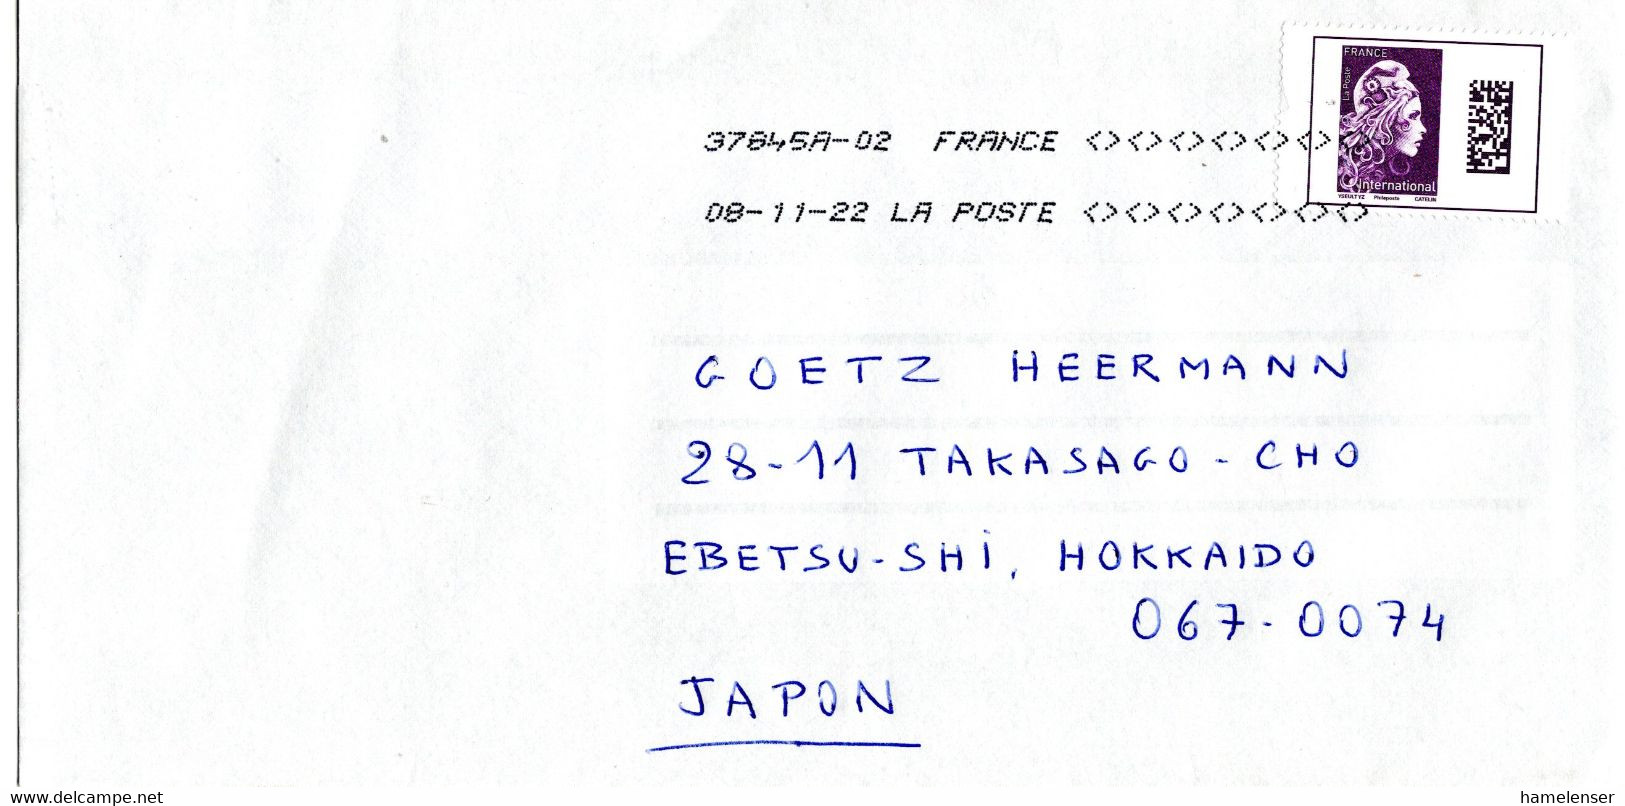 FRANCE
La Poste
International
YSEULT YZ Philaposte CATELIN
37845A-02 FRANCE <><><><><><>
08-11-22 LA POSTE <><><><><><><>
GOETZ HEERMANN
28-11 TAKASAGO-CHO
EBETSU-SHI, HOKKAIDO
067-0074
JAPON
www.delcampe.net
hamelenser